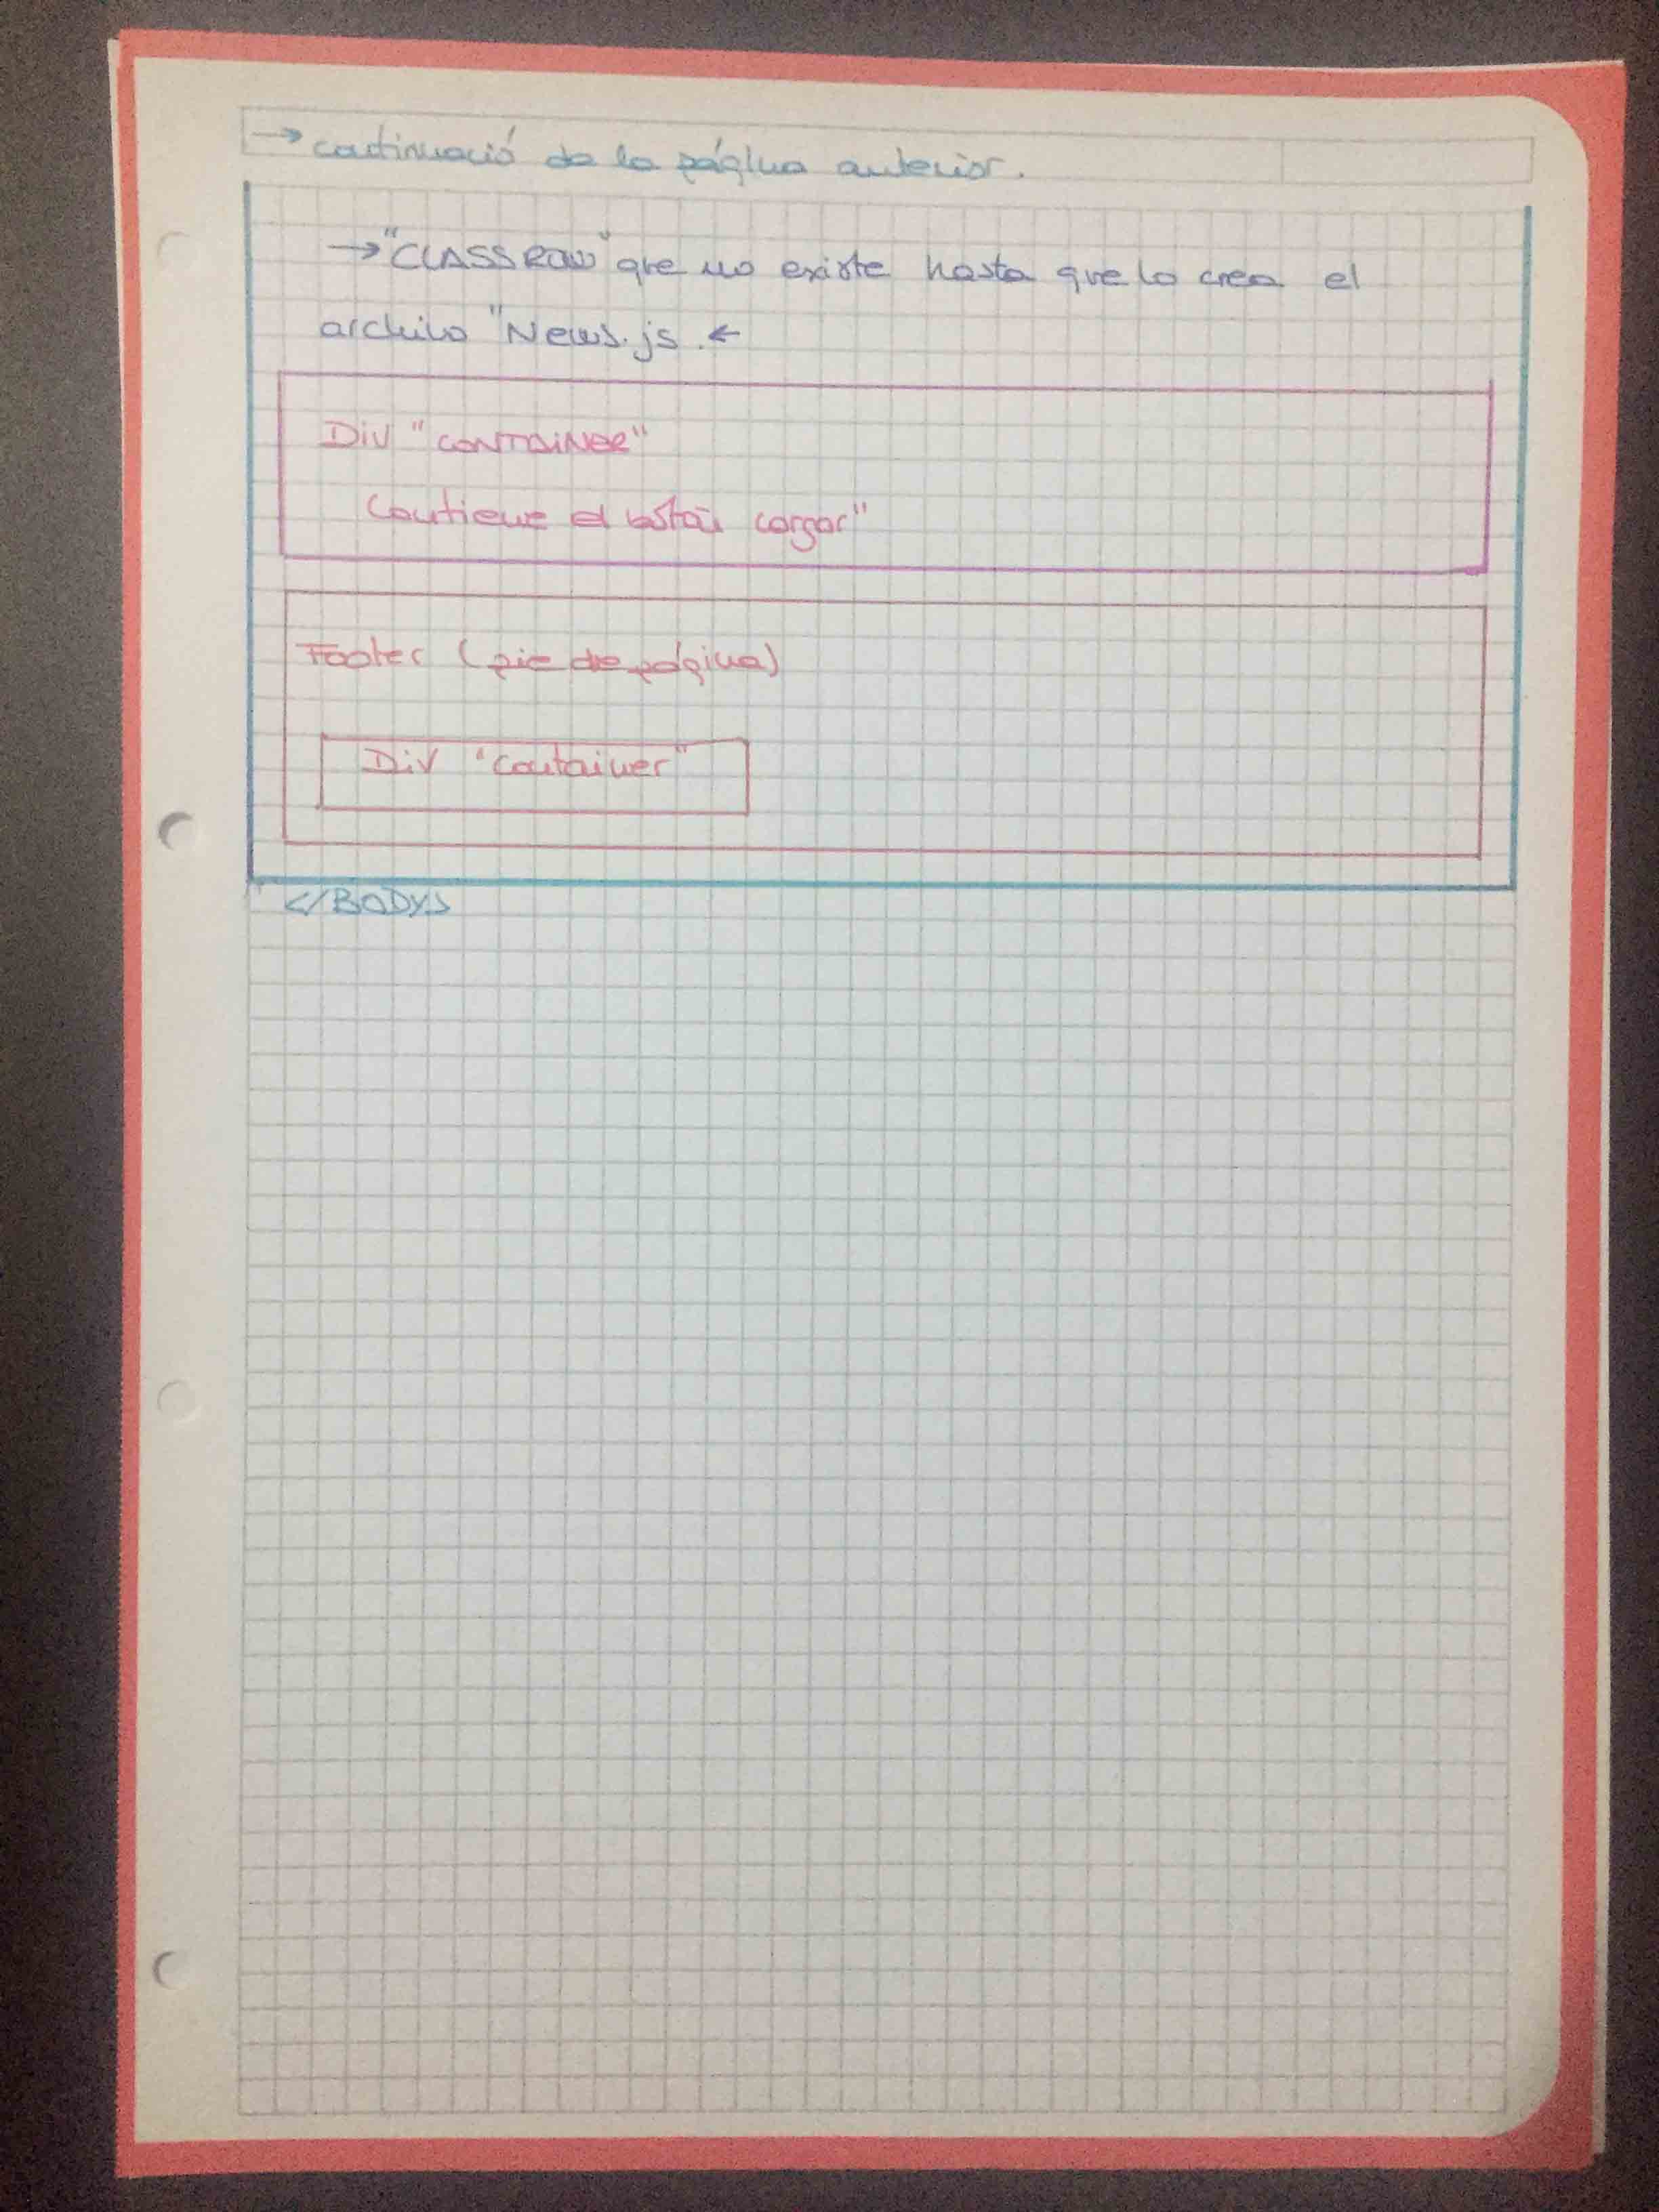 → continuació de la página anterior.
→ "CLASS ROW" que no existe hasta que lo crea el
archivo "News.js. ←
Div "CONTAINER"
Contiene el botón cargar"
Footer (pie de página)
Div "Container"
</BODY>